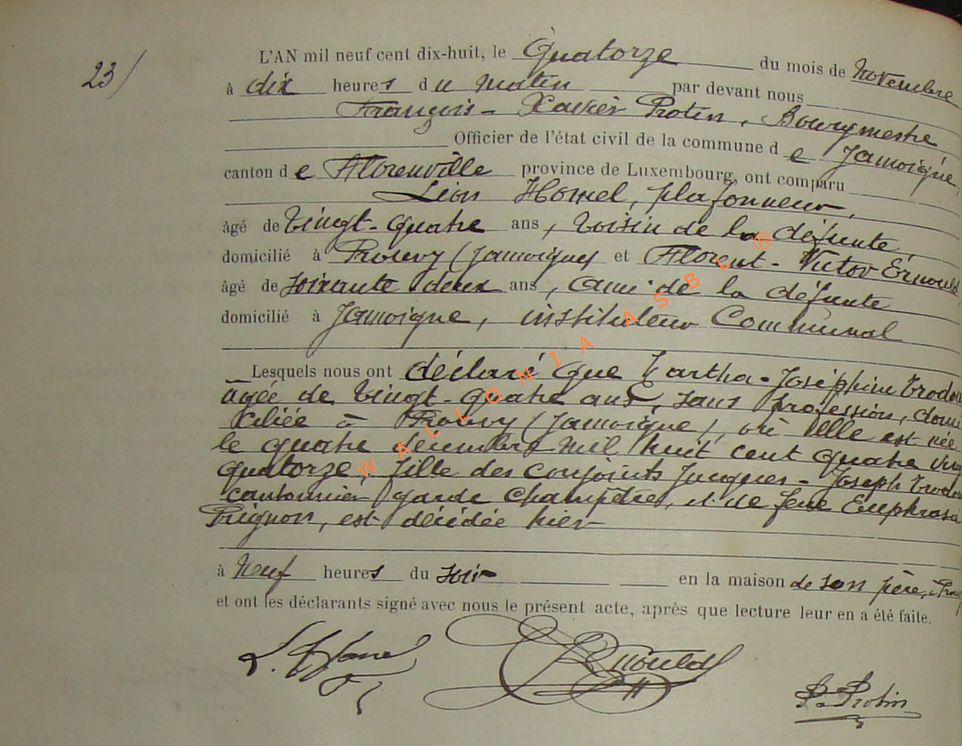 23/
L'AN mil neuf cent dix-huit, le Quatorze du mois de Novembre
à dix heures du matin par devant nous
François-Xavier Protin, Bourgmestre
Officier de l'état civil de la commune de Jamoigne,
canton de Florenville province de Luxembourg, ont comparu
Léon Hamel, plafonneur,
âgé de Vingt-quatre ans, voisin de la défunte
domicilié à Prouvy (Jamoigne) et Florent-Victor Ernould
âgé de soixante deux ans, ami de la défunte
domicilié à Jamoigne, instituteur Communal
Lesquels nous ont déclaré que Martha-Joséphine
âgée de Vingt-quatre ans, sans profession, domi
ciliée à Prouvy (Jamoigne), où elle est née
le quatre décembre mil huit cent quatre vingt
quatorze, fille des conjoints Jacques-Joseph
cantonnier garde champêtre, et de feue Euphrasie
Pignon, est décédée hier
à Neuf heures du soir en la maison de son père, à
et ont les déclarants signé avec nous le présent acte, après que lecture leur en a été faite.
Ernould
P. Protin
WALLONIA ASBL ©